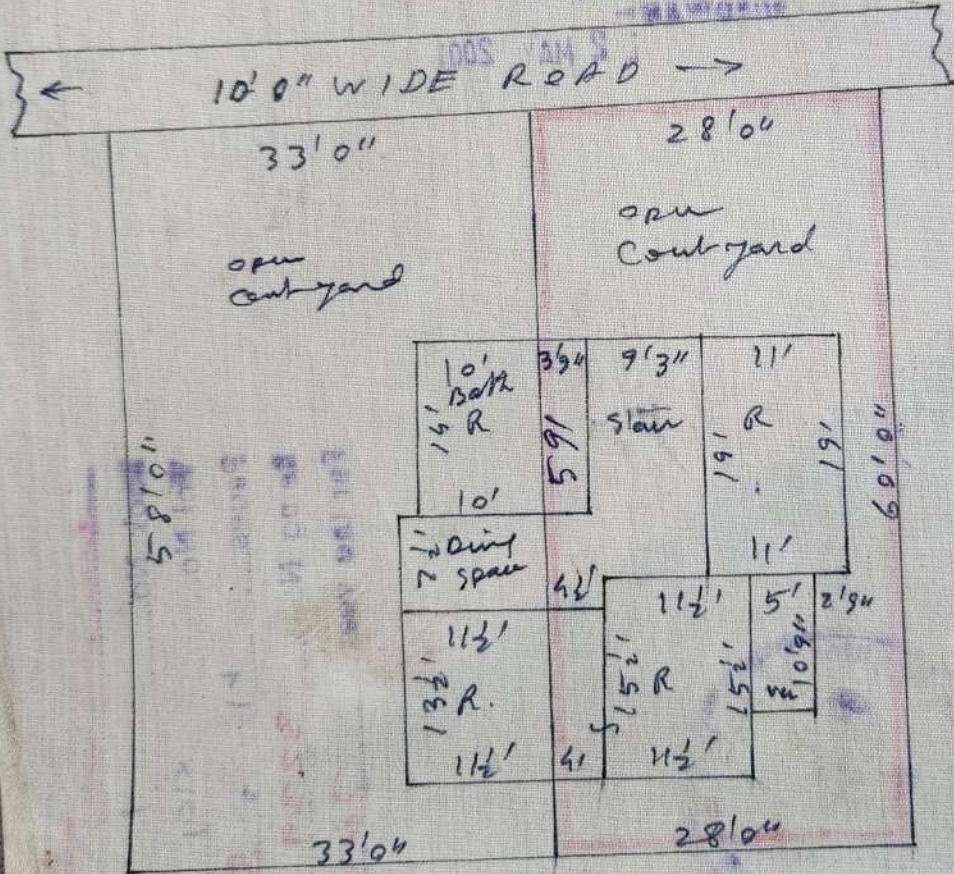 2 MAY 2001
← 10'0" WIDE ROAD →
33'0"
28'0"
open
Courtyard
open
Courtyard
10'
Bath
R
10'
3'9"
9'3"
Stair
11'
R
19'
19'
11'
58'0"
60'0"
7½'
Space
4½'
11½'
13½'
R.
11½'
4'
11½'
15½'
R
15½'
11½'
5'
10'9"
2'9"
33'0"
28'0"